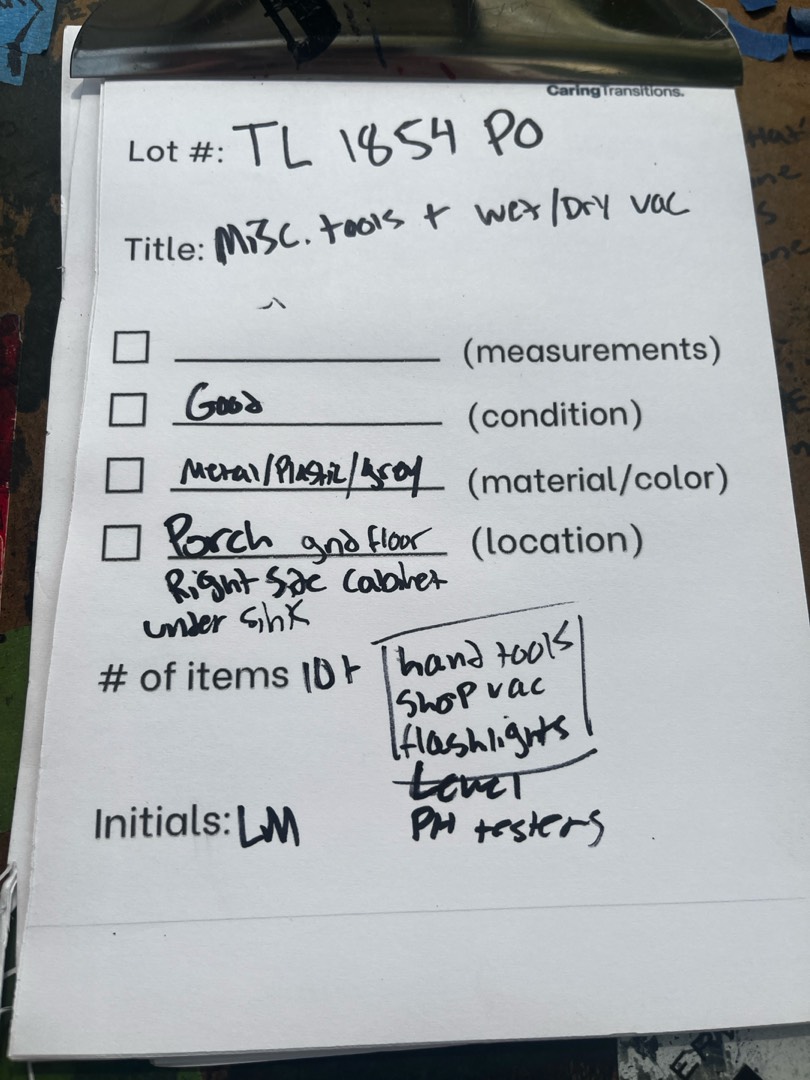 CaringTransitions.
Lot #: TL 1854 PO
Title: Misc. tools + wet/Dry vac
(measurements)
Good (condition)
Metal/Plastic/gray (material/color)
Porch gnd floor (location)
Right side cabinet
under sink
# of items 10+
hand tools
shop vac
flashlights
Level
PH testers
Initials: LM